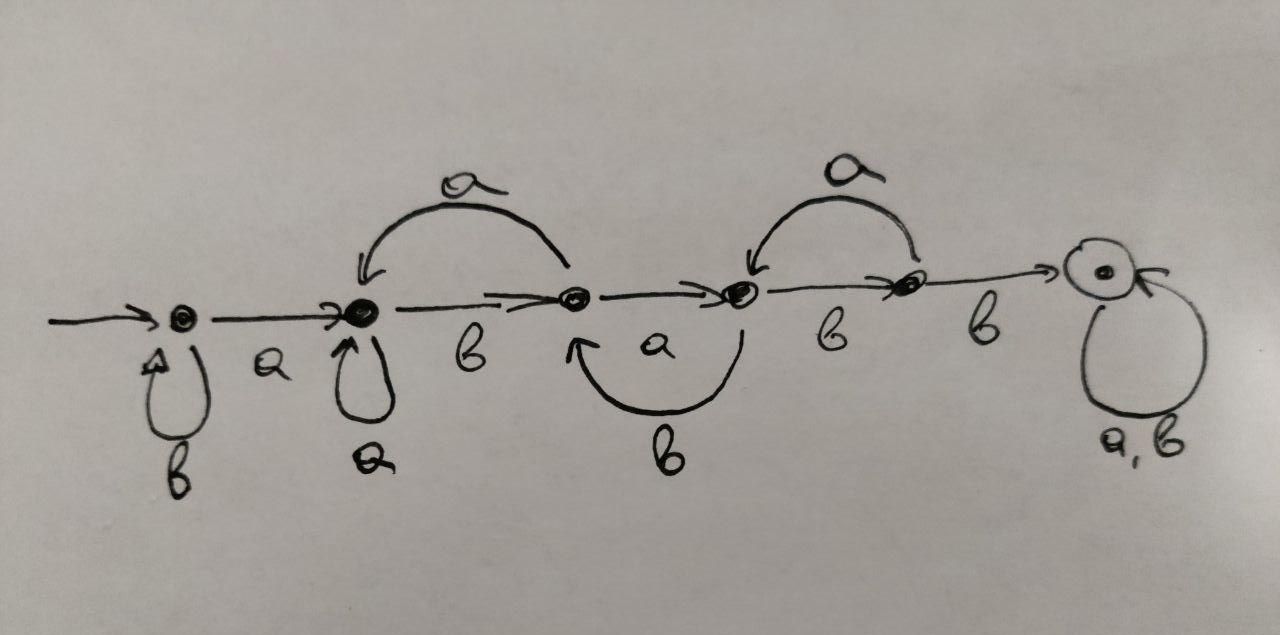 a
a
a
b
a
b
b
b
a
b
a, b